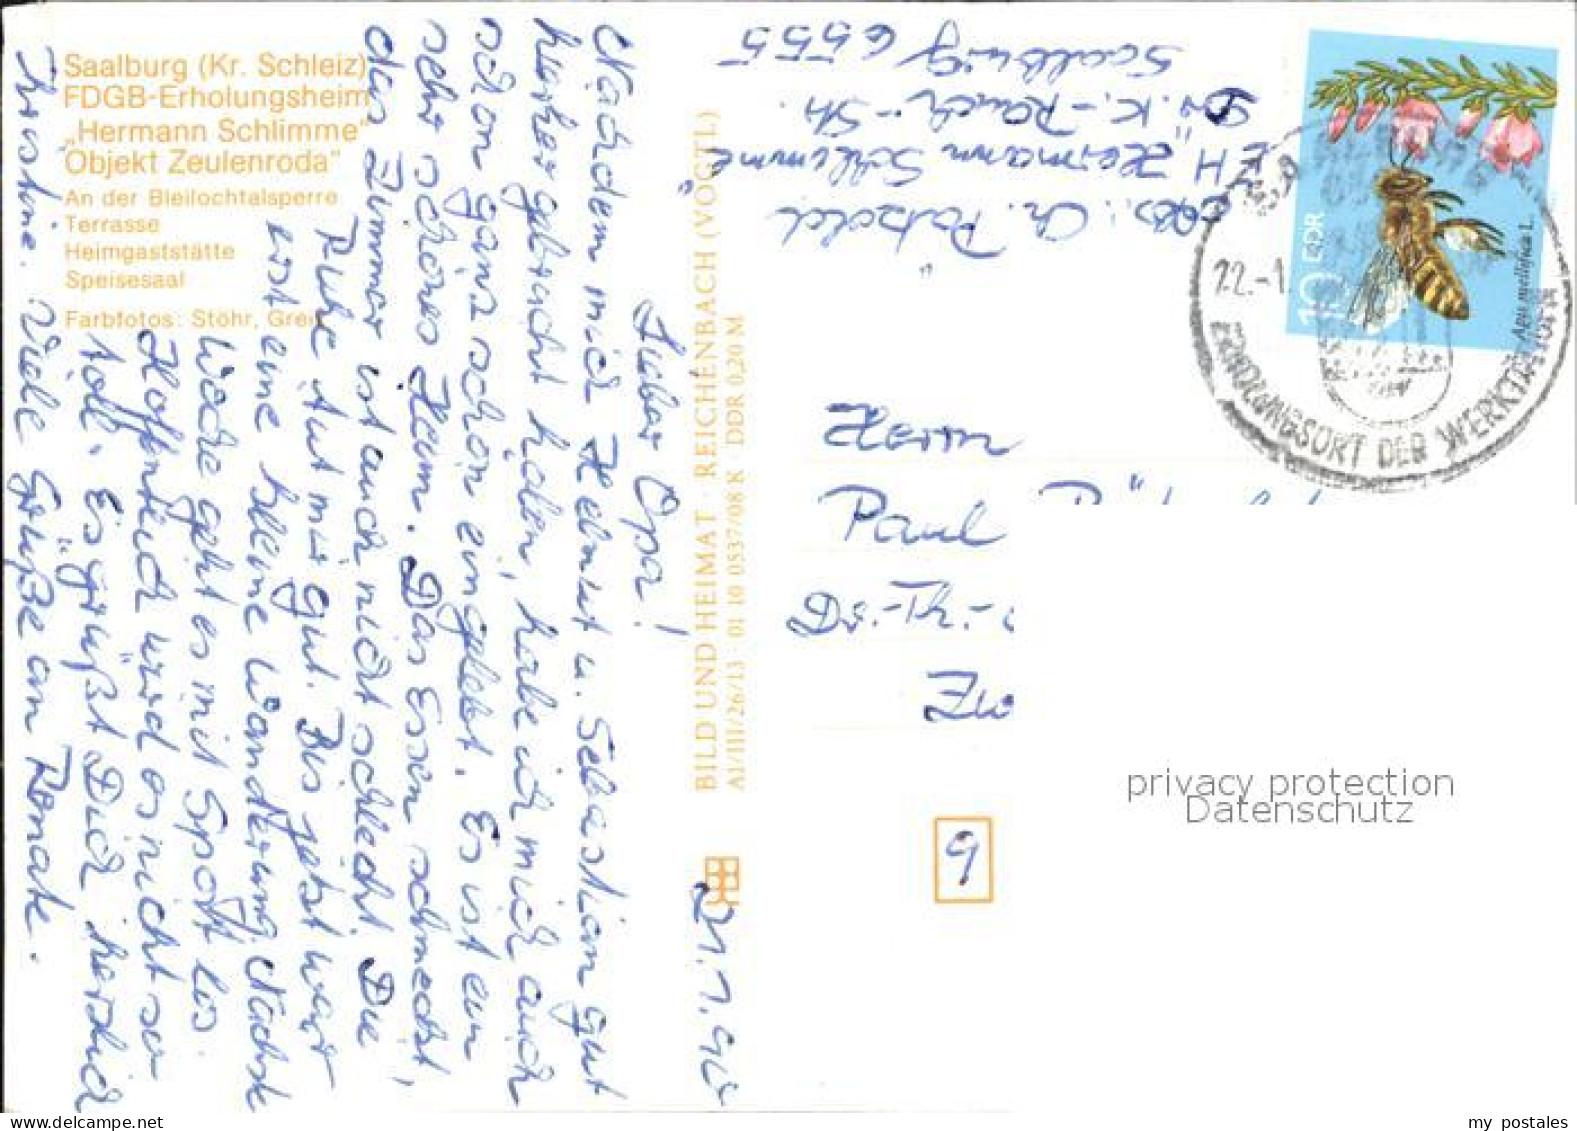 Saalburg (Kr. Schleiz)
FDGB-Erholungsheim
„Hermann Schlimme"
Objekt Zeulenroda"
An der Bleilochtalsperre
Terrasse
Heimgaststätte
Speisesaal
Farbfotos: Stöhr, Grei
21.1.90
Lieber Opa!
Nachdem mich Helmut u. Sebastian gut
hierher gebracht haben, habe ich mich auch
schon ganz schön eingelebt. Es ist ein
sehr schönes Heim. Das Essen schmeckt,
das Zimmer ist auch nicht schlecht. Die
Ruhe tut mir gut. Bis jetzt war
erst eine kleine Wanderung. Nächste
Woche geht es mit Sport los.
Hoffentlich wird es nicht so
toll. Es grüßt Dich herzlich
Christine. Viele Grüße an Renate.
BILD UND HEIMAT · REICHENBACH (VOGTL)
A1/III/26/13 · 01 10 0537/08 K · DDR 0,20 M
Abs.: Ch. Pätzold
EH "Hermann Schlimme"
Dr.-K.-Rauch-Str.
Saalburg 6555
10 DDR
Apis mellifica L.
22.-1
ERHOLUNGSORT DER WERKTÄTIGEN
Herrn
Paul
Zw
9
privacy protection
Datenschutz
my postales